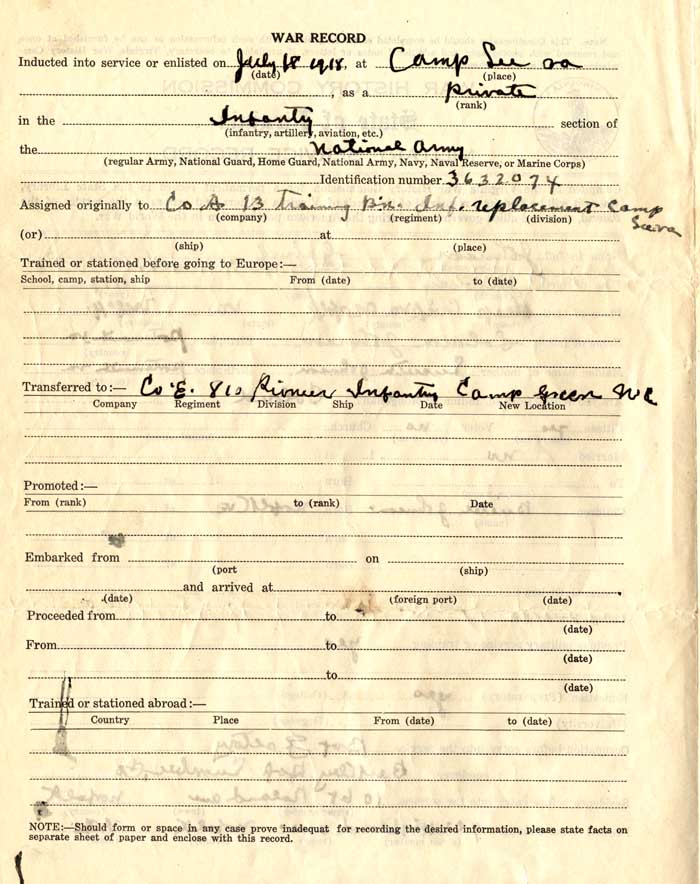 WAR RECORD
Inducted into service or enlisted on July 18 1918, at Camp Lee va
(date) (place)
, as a private
(rank)
in the Infantry section of
(infantry, artillery, aviation, etc.)
the national army
(regular Army, National Guard, Home Guard, National Army, Navy, Naval Reserve, or Marine Corps)
Identification number 3632074
Assigned originally to Co 13 Training Bn. Inf. replacement Camp
(company) (regiment) (division) Lee va
(or) at
(ship) (place)
Trained or stationed before going to Europe:—
School, camp, station, ship From (date) to (date)
Transferred to:— Co E. 810 Pioneer Infantry Camp Green NC
Company Regiment Division Ship Date New Location
Promoted:—
From (rank) to (rank) Date
Embarked from on
(port (ship)
and arrived at
(date) (foreign port) (date)
Proceeded from to
(date)
From to
(date)
to
(date)
Trained or stationed abroad:—
Country Place From (date) to (date)
NOTE:—Should form or space in any case prove inadequat for recording the desired information, please state facts on
separate sheet of paper and enclose with this record.